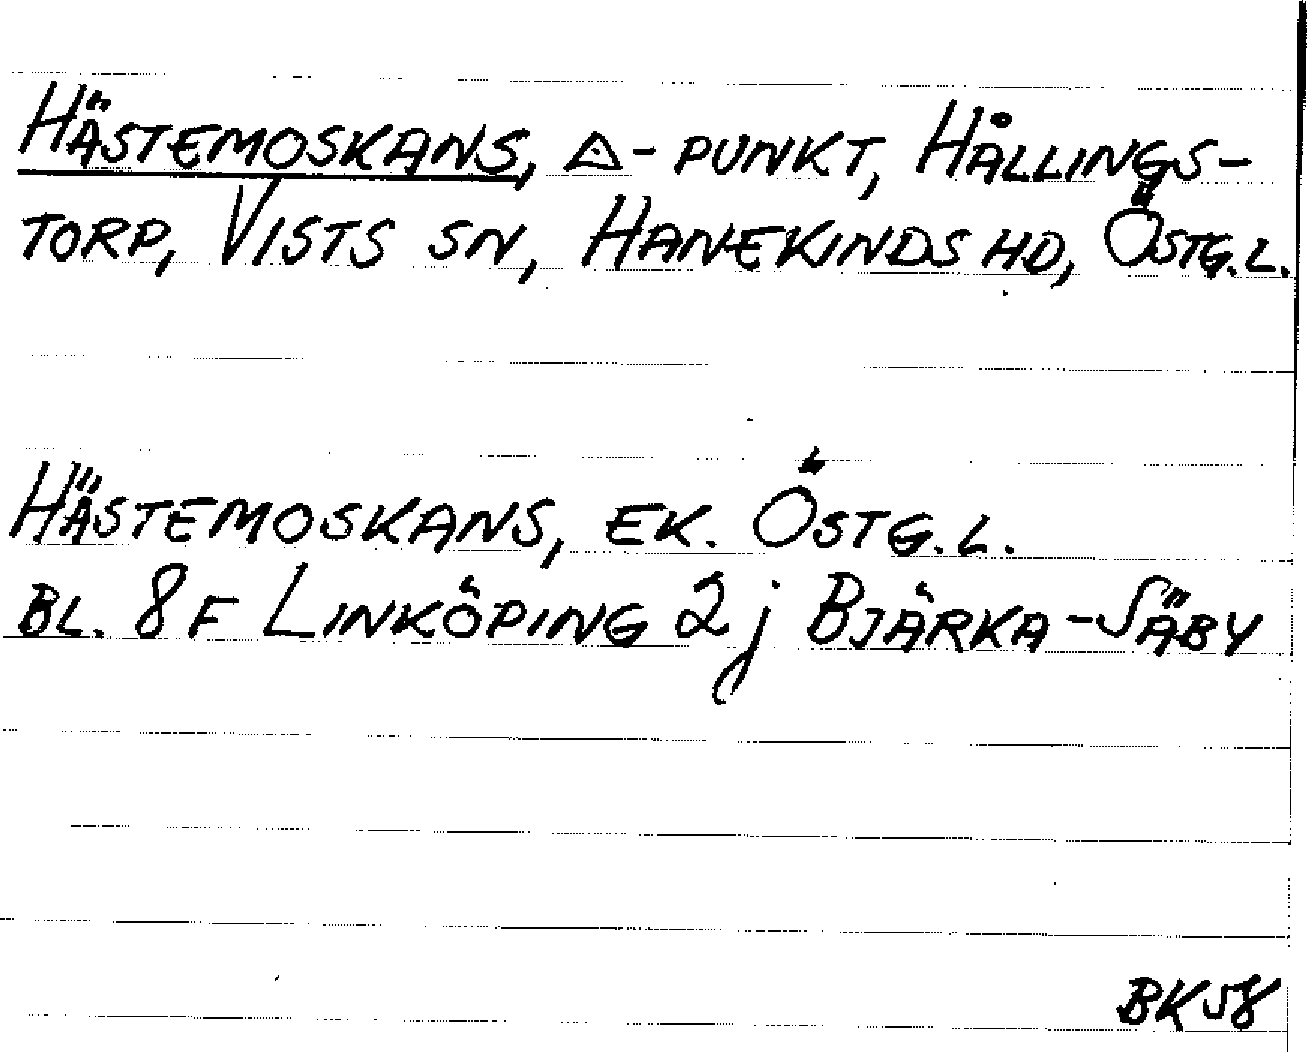 HÄSTEMOSKANS, △-PUNKT, HÅLLINGS-
TORP, VISTS SN, HANEKINDS HD, ÖSTG.L.
HÄSTEMOSKANS, EK. ÖSTG.L.
BL. 8F LINKÖPING 2j BJÄRKA-SÄBY
BK58